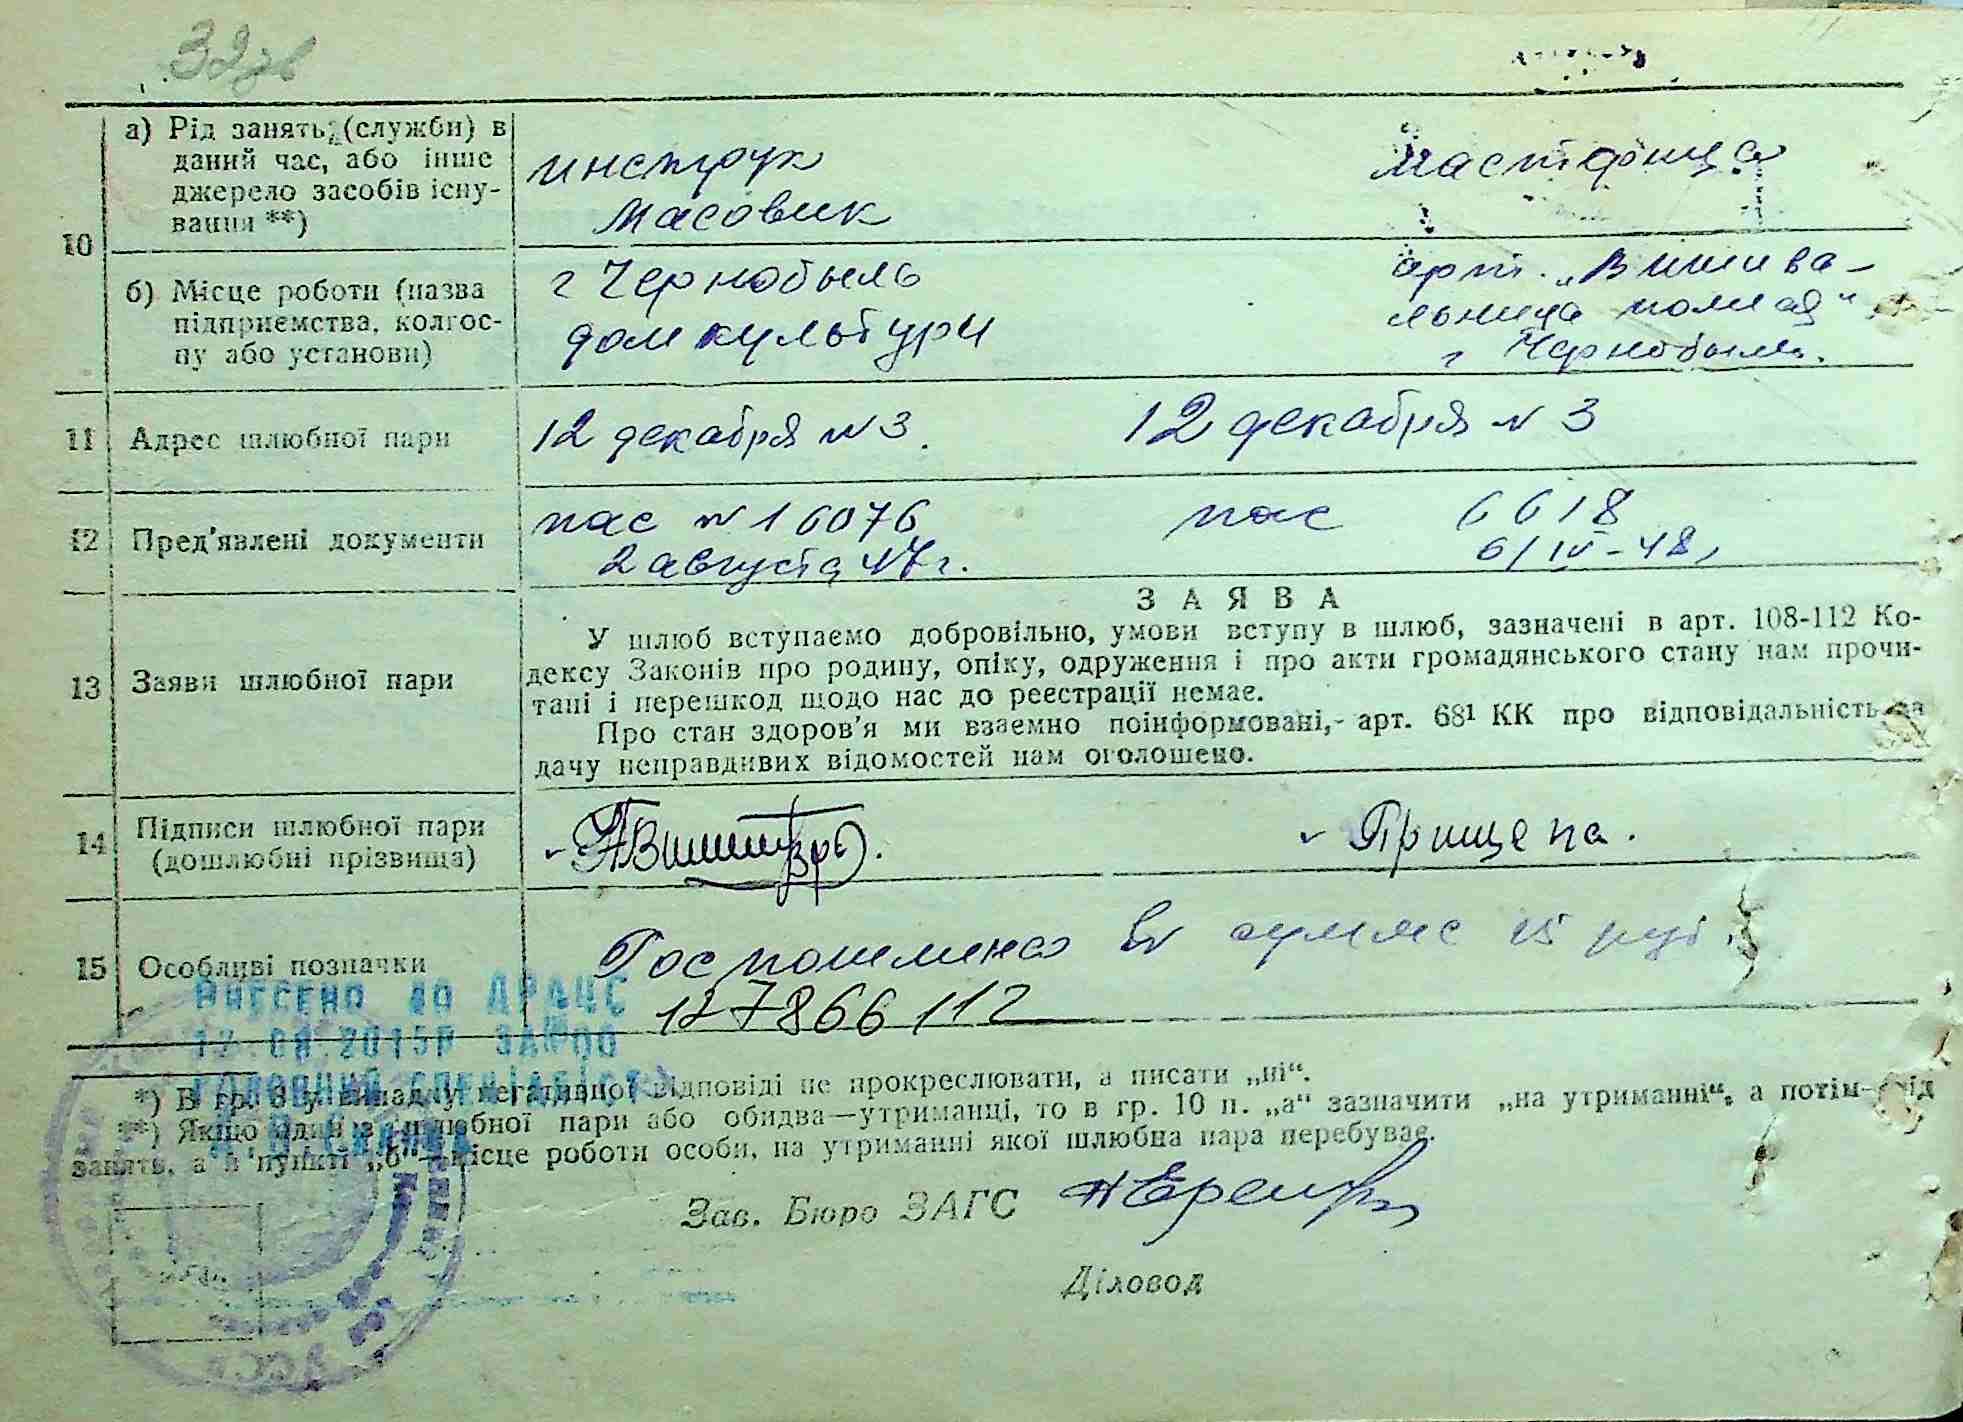 32
10
а) Рід занять (служби) в
даний час, або інше
джерело засобів існу-
вання **)
инструк
масовик
мастерица
б) Місце роботи (назва
підприємства, колгос-
пу або установи)
г Чернобыль
дом культури
арт. „Вишива-
льниця
г Чернобыль.
11 Адрес шлюбної пари
12 декабря N 3.
12 декабря N 3
12 Пред'явлені документи
пас N 16076
2 августа 47 г.
пас 6618
6/IV-48,
13 Заяви шлюбної пари
ЗАЯВА
У шлюб вступаємо добровільно, умови вступу в шлюб, зазначені в арт. 108-112 Ко-
дексу Законів про родину, опіку, одруження і про акти громадянського стану нам прочи-
тані і перешкод щодо нас до реєстрації немає.
Про стан здоров'я ми взаємно поінформовані,- арт. 68¹ КК про відповідальність за
дачу неправдивих відомостей нам оголошено.
14 Підписи шлюбної пари
(дошлюбні прізвища)
Прищепа.
15 Особливі позначки
Госпошлина в сумме 15 руб.
127866 112
ВНЕСЕНО до ДРАЦС
17.09.2015Р
ГОЛОВНИЙ СПЕЦІАЛІСТ
*) В гр. 8 у випадку негативної відповіді не прокреслювати, а писати „ні“.
**) Якщо один з шлюбної пари або обидва—утриманці, то в гр. 10 п. „а“ зазначити „на утриманні“, а потім—рід
занять, а в пункті „б“—місце роботи особи, на утриманні якої шлюбна пара перебуває.
Зав. Бюро ЗАГС
Діловод